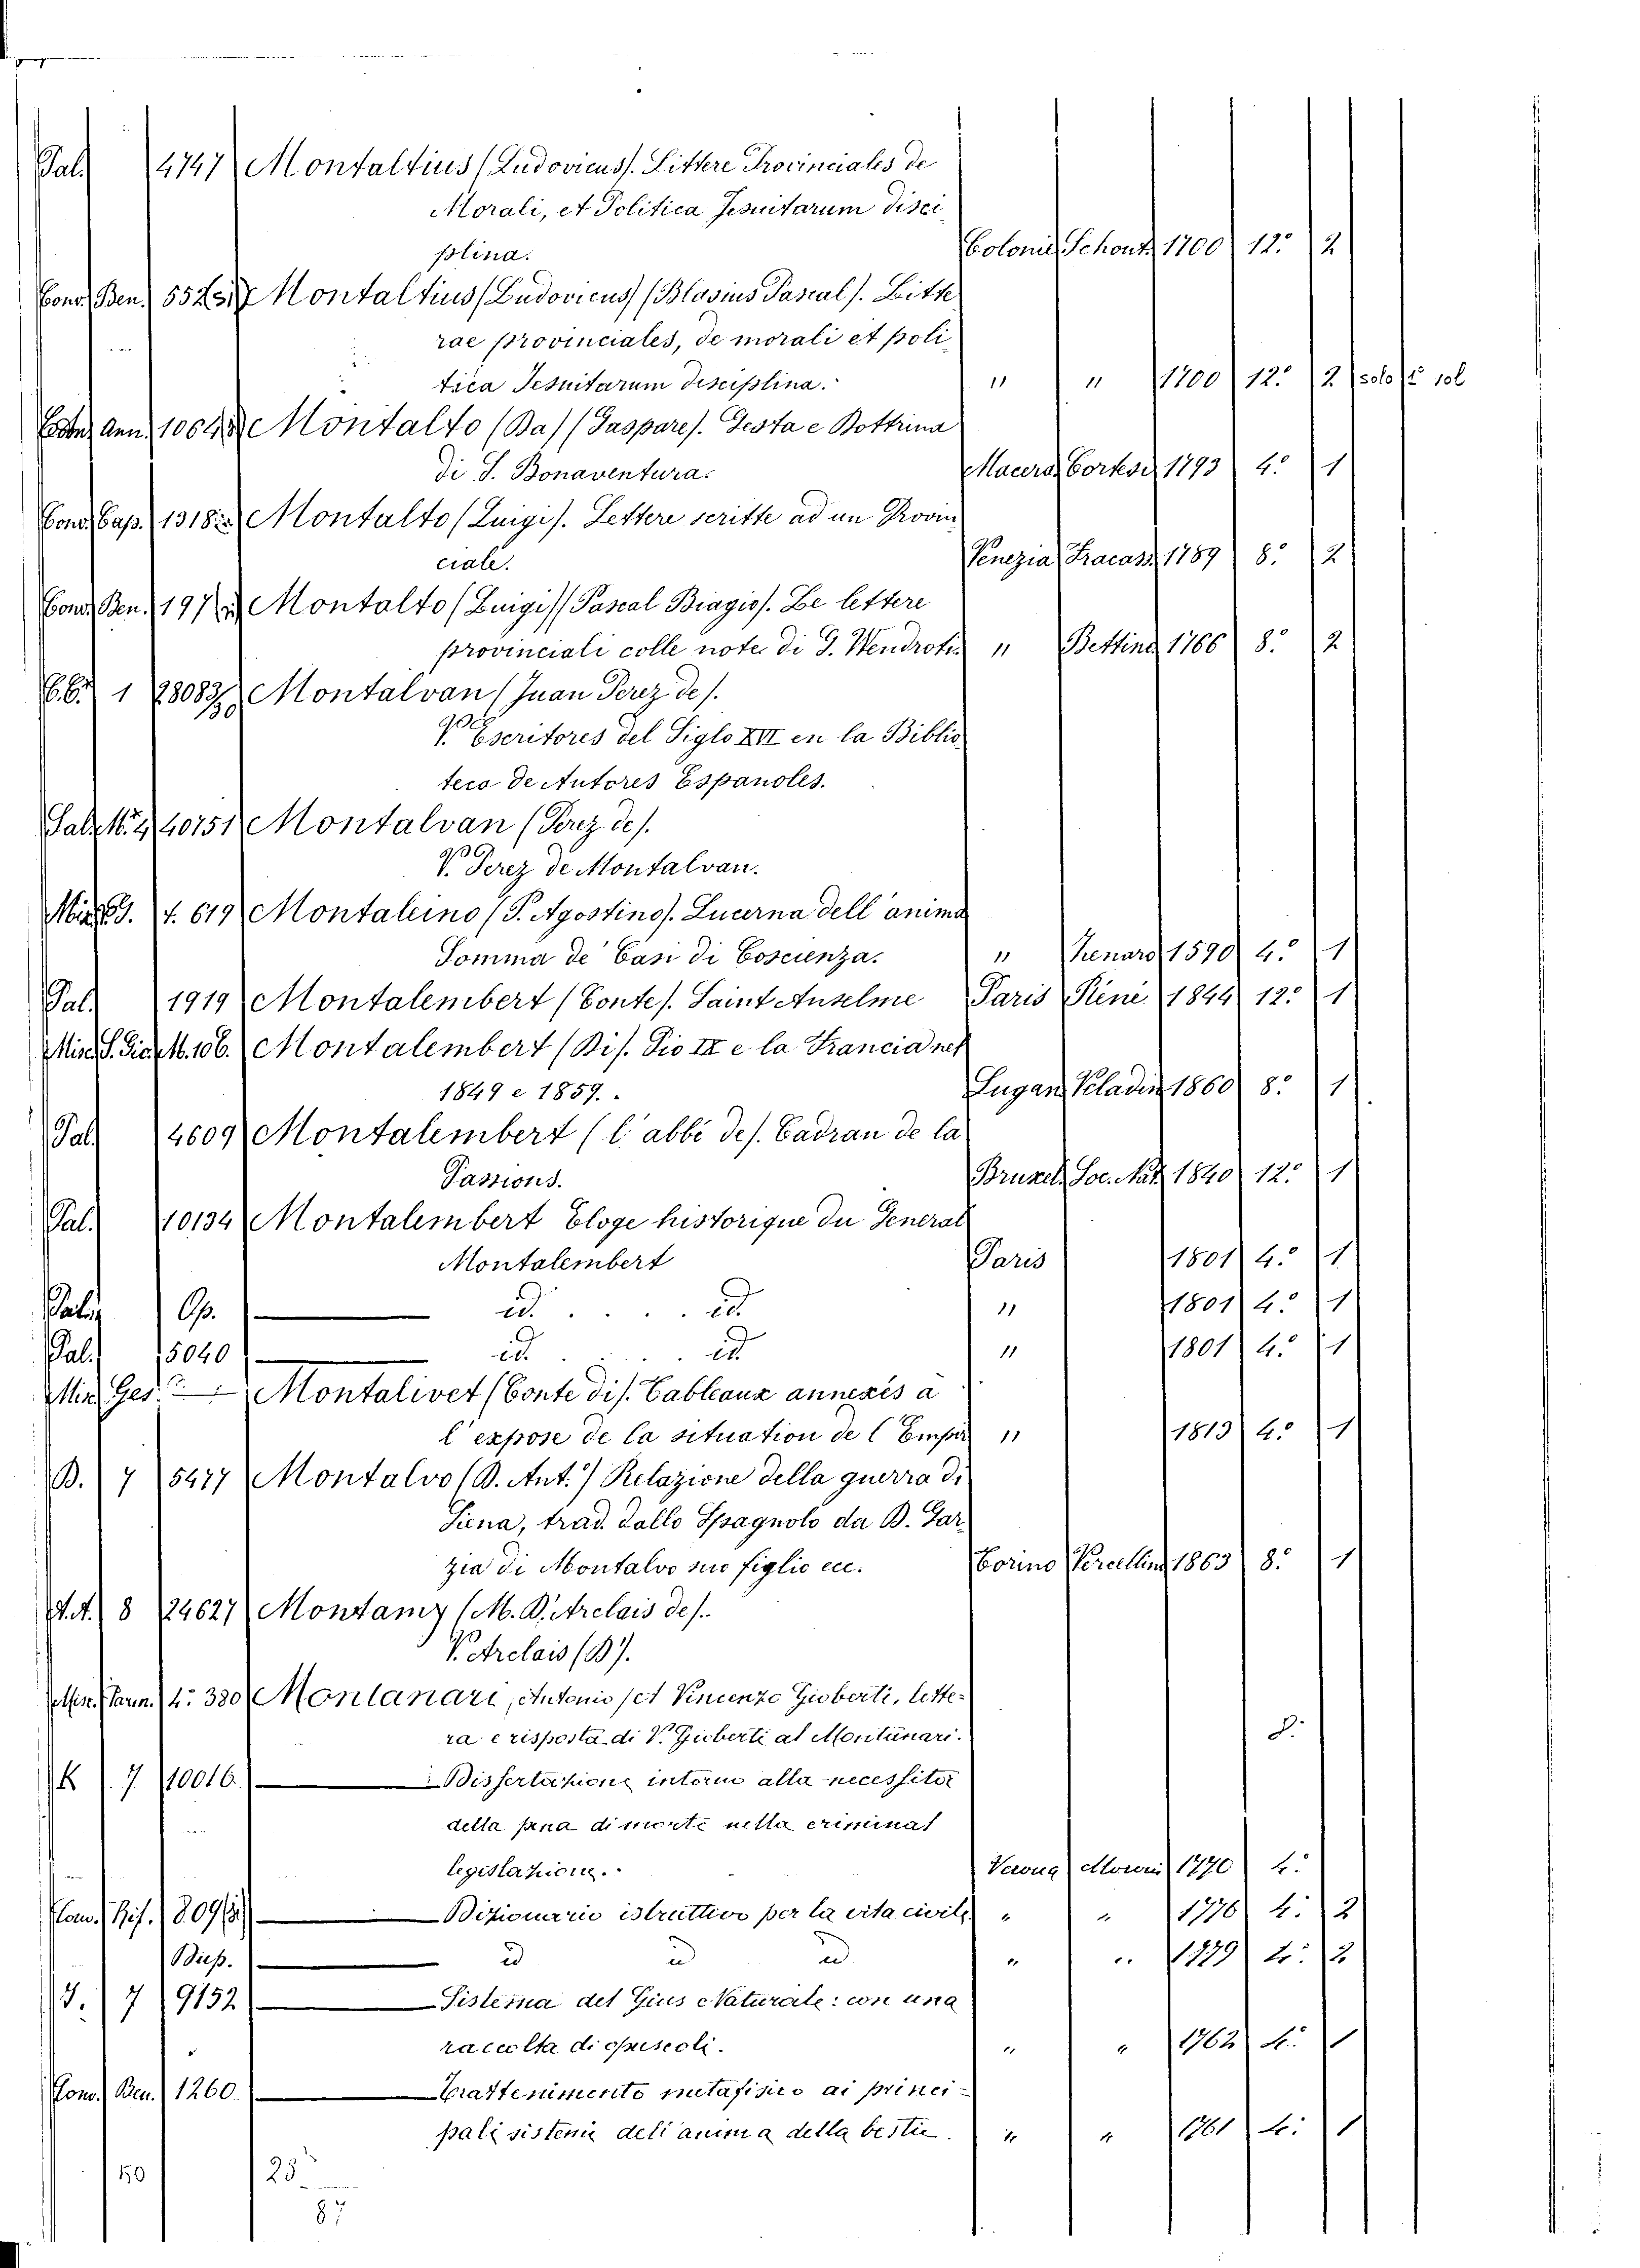 Pal. 4747 Montaltius (Ludovicus). Littere Provinciales de
Morali, et Politica Jesuitarum disci
plina. Colonie Schout 1700 12.° 2
Conv. Ben. 552 Montaltius (Ludovicus) (Blasius Pascal). Litte
rae provinciales, de morali et poli
tica Jesuitarum disciplina. " " 1700 12.° 2 solo sol
Ann. 1064 Montalto (Da) (Gaspare). Gesta e Dottrina
di S. Bonaventura. Macera Cortesi 1793 4.° 1
Conv. Cap. 1318 Montalto (Luigi). Lettere scritte ad un Provin
ciale. Venezia Fracass 1789 8.° 2
Conv. Ben. 197 Montalto (Luigi) (Pascal Biagio). Le lettere
provinciali colle note di G. Wendroti " Bettine 1766 8.° 2
C.C. 1 28083 Montalvan (Juan Perez de).
V. Escritores del Siglo XVII en la Biblio
teca de Autores Espanoles.
40151 Montalvan (Perez de).
V. Perez de Montalvan.
4. 619 Montalcino (P. Agostino). Lucerna dell'anima
Somma de' Casi di Coscienza. " 1590 4.° 1
Pal. 1919 Montalembert (Conte). Saint Anselme Paris 1844 12.° 1
Min. M. 106. Montalembert (Di). Pio IX e la Francia nel
1849 e 1859. Lugan. Veladin 1860 8.° 1
Pal. 4609 Montalembert (l'abbé de). Cadran de la
Passions. Bruxel. Soc. Nat. 1840 12.° 1
Pal. 10134 Montalembert Eloge historique du General
Montalembert Paris 1801 4.° 1
Op. id. . . . . id. " 1801 4.° 1
Pal. 15040 id. . . . . id. " 1801 4.° 1
Min. Ges. Montalivet (Conte di). Tableaux annexés a
l'expose de la situation de l'Empir " 1813 4.° 1
B. 7 5477 Montalvo (D. Ant.°) Relazione della guerra di
Siena, trad. dallo Spagnolo da D. Gar
zia di Montalvo suo figlio ecc. Torino Vercellino 1863 8.° 1
A.A. 8 24627 Montamy (M. D. Arclais de).
V. Arclais (D').
4. 380 Montanari, Antonio (et Vincenzo Gioberti, lette-
ra e risposta di V. Gioberti al Montanari. 8.
K 7. 10016. Dissertazione intorno alla necessità
della pena di morte nella criminal
legislazione. Verona Moroni 1770 4.°
Rif. 809 Dizionario istruttivo per la vita civile " " 1776 4.° 2
Busp. id id id " " 1779 4.° 2
I. 7 9152 Sistema del Gius Naturale: con una
raccolta di opuscoli. " " 1762 4.° 1
Conv. Ben. 1260. Trattenimento metafisico ai princi-
pali sistemi dell'anima della bestie. " " 1761 4.° 1
25
87